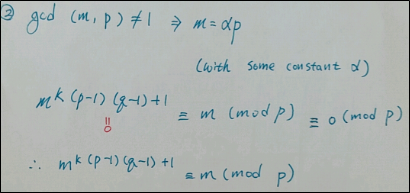 ② gcd (m, p) ≠ 1 ⇒ m = αp
(with some constant α)
m^k (p-1) (q-1) +1 ≡ m (mod p) ≡ 0 (mod p)
=
0
∴ m^k (p-1) (q-1) +1 ≡ m (mod p)